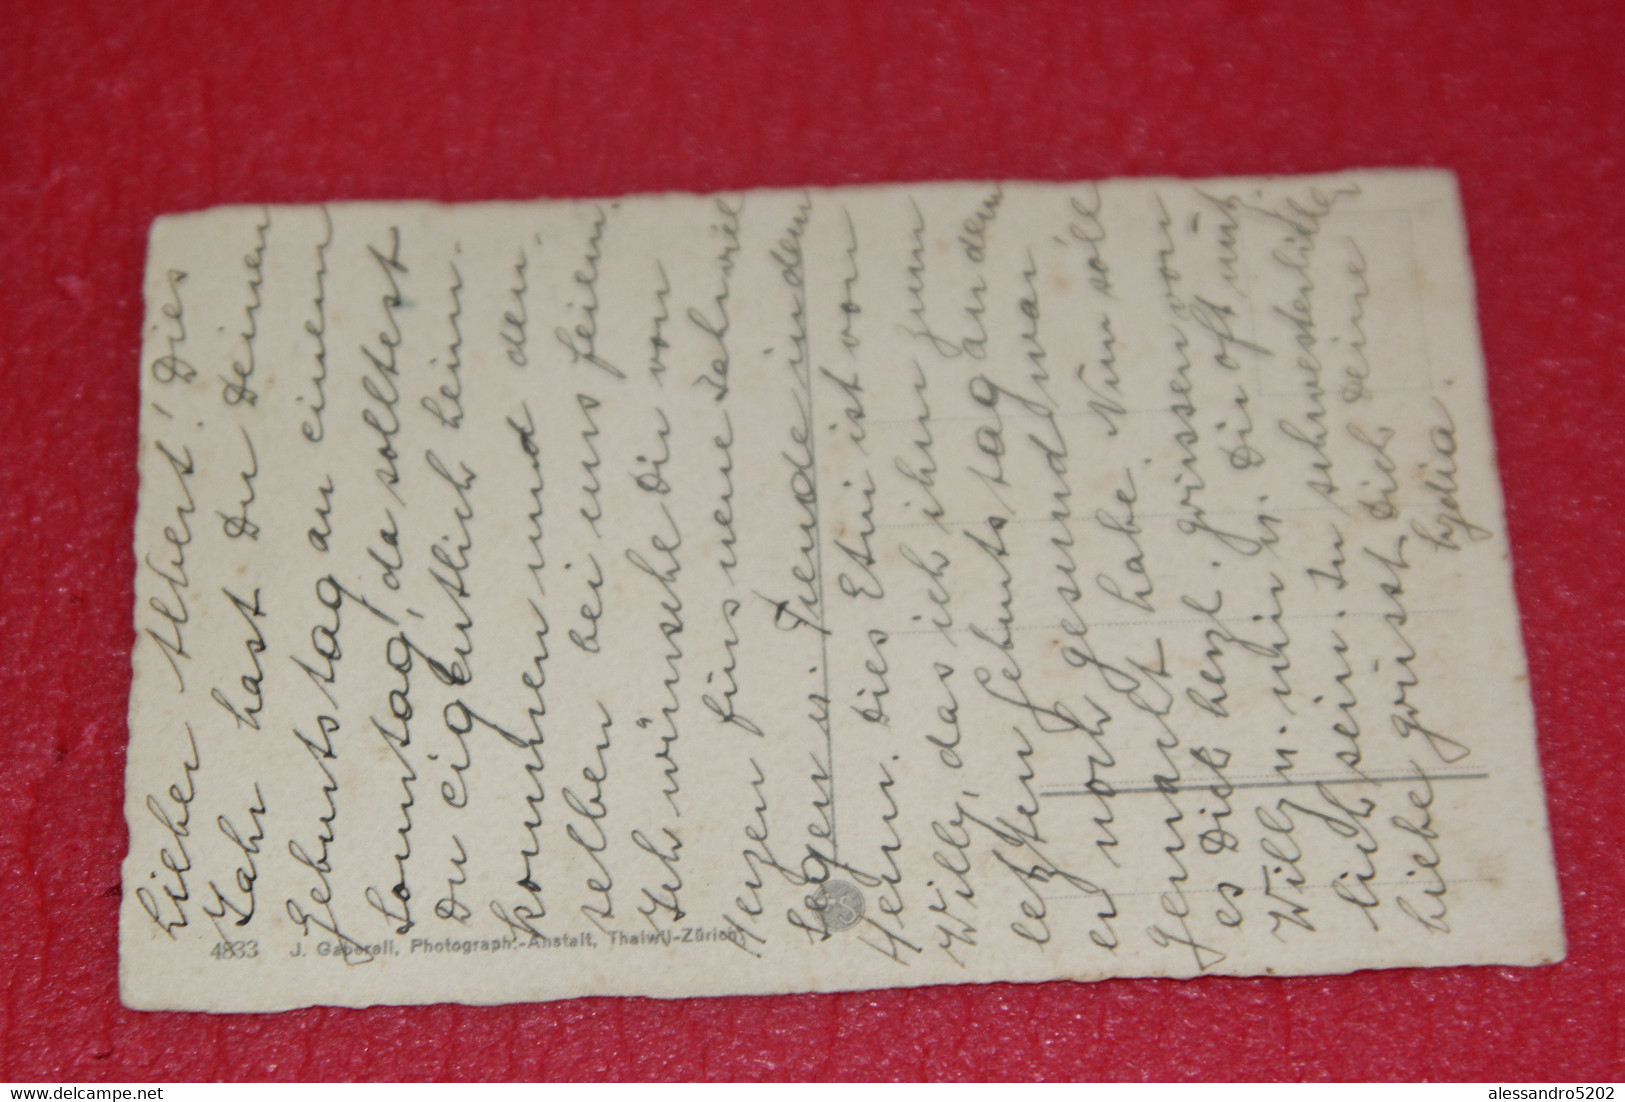 Lieber Albert! Dies
Jahr hast Du Deinen
Geburtstag an einem
Sonntag, da solltest
Du eigentlich heim
kommen und den-
selben bei uns feiern.
Ich wünsche Dir von
Herzen fürs neue Jahr viel
Segen u. Freude in dem
Herrn. Dies Etui ist von
Willy, das ich ihm zum
letzten Geburtstag an dem
er noch gesund war
gemacht habe. Nun soll
es Dich herzl. grüssen von
Willy u. mir u. Dir oft nütz-
lich sein. In schwesterlicher
Liebe grüsst Dich Deine
Lydia.
4833 J. Gaberell, Photograph.-Anstalt, Thalwil-Zürich
www.delcampe.net
alessandro5202